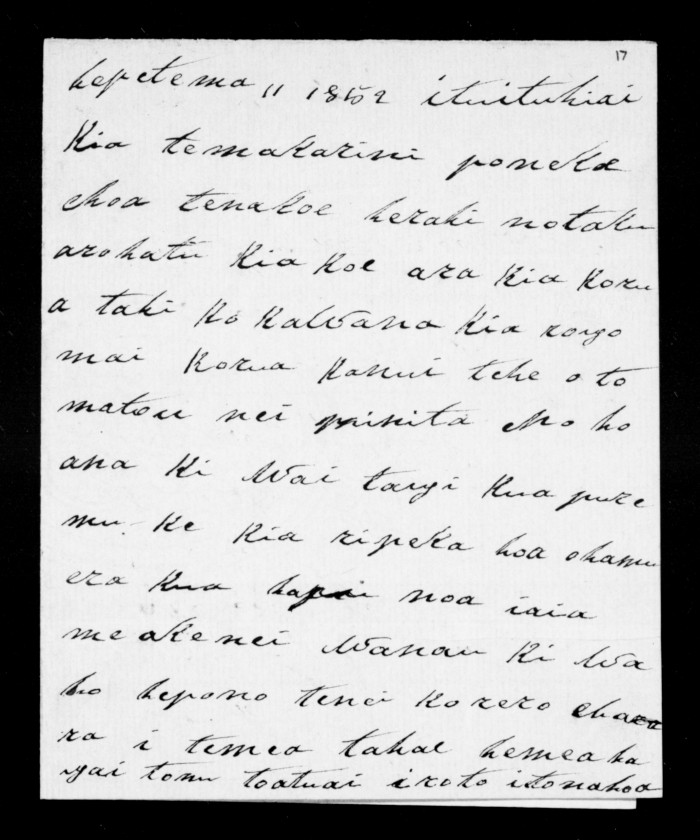 17
hepetema 11 1852 ituituhiai
Kia temakarini poneke
ehoa tenakoe herahi notaku
arohatu Kia Koe ara Kia Koru
a tahi Ko Kawana Kia rongo
mai Korua Kanui tehe o to
matou nei minita eNo ho
ana Ki Wai tangi Kua pure
mu Ke Kia ripeka hoa ohamu
era Kua hapai noa iaia
meakenei Wanau Ki Wa
ho hepono tenei Korero ehara
ra i temea tahae hemea ha
ngai tonu toatuai iroto itonahoa